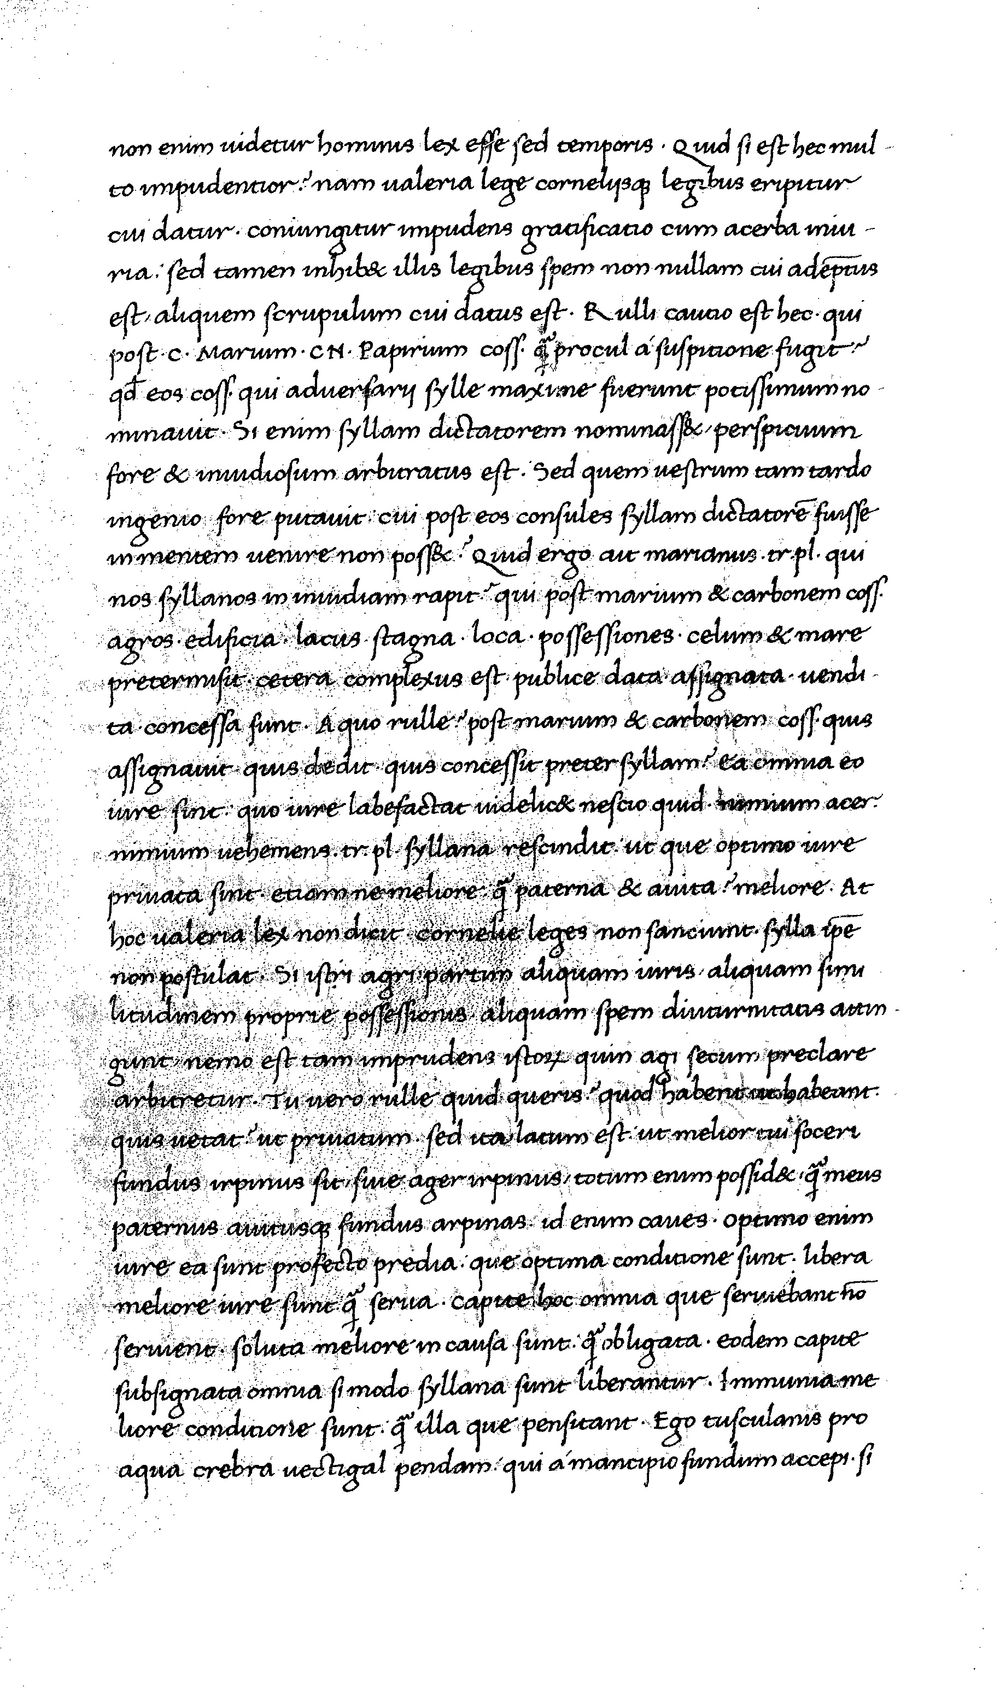 non enim uidetur hominis lex esse sed temporis · Quid si est hec mul-
to impudentior? nam ualeria lege corneliisq; legibus eripitur
cui datur · coniungitur impudens gratificatio cum acerba iniu-
ria: sed tamen inhib& illis legibus spem non nullam cui adēptus
est, aliquem scrupulum cui datus est · Rulli cautio est hec · qui
post · C · Marium · CN · Papirium coss. q̄ procul á suspitione fugit?
qđ eos coss. qui aduersarij sylle maxime fuerunt potissimum no-
minauit · Si enim syllam dictatorem nominass&, perspicuum
fore & inuidiosum arbitratus est · Sed quem uestrum tam tardo
ingenio fore putauit · cui post eos consules syllam dictatorē fuisse
in mentem uenire non poss&? Quid ergo ait marianus · tr · pl · qui
nos syllanos in inuidiam rapit? qui post marium & carbonem coss.
agros · edificia · lacus · stagna · loca · possessiones · celum & mare
pretermisit · cetera complexus est · publice data assignata · uendi-
ta · concessa sunt · A quo rulle? post marium & carbonem coss. quis
assignauit · quis dedit · quis concessit preter syllam? Ea omnia eo
iure sint · quo iure labefactat uidelic& nescio quid · nimium acer ·
nimium uehemens · tr · pl · syllana rescindit · ut que optimo iure
priuata sint · etiam ne meliore · q̄ paterna & auita? meliore · At
hoc ualeria lex non dicit · cornelie leges non sanciunt · sylla ip̄e
non postulat · Si isti agri partim aliquam iuris, aliquam simi
litudinem proprie possessionis · aliquam spem diuturnitatis attin-
gunt · nemo est tam imprudens istoꝝ quin agi secum preclare
arbitretur · Tu uero rulle quid queris? quod habent ut habeant ·
quis uetat? ut priuatum · sed ita latum est · ut melior tui soceri
fundus irpinus sit, siue ager irpinus, totum enim possid&, q̄ meus
paternus auitusq; fundus arpinas · id enim caues · optimo enim
iure ea sunt profecto predia · que optima conditione sunt · libera
meliore iure sunt q̄ serua · capite hoc omnia que seruiebant nō
seruient · soluta meliore in causa sunt · q̄ obligata · eodem capite
subsignata omnia si modo syllana sunt liberantur · Immunia me
liore conditione sunt · q̄ illa que pensitant · Ego tusculanis pro
aqua crebra uectigal pendam · qui á mancipio fundum accepi · si